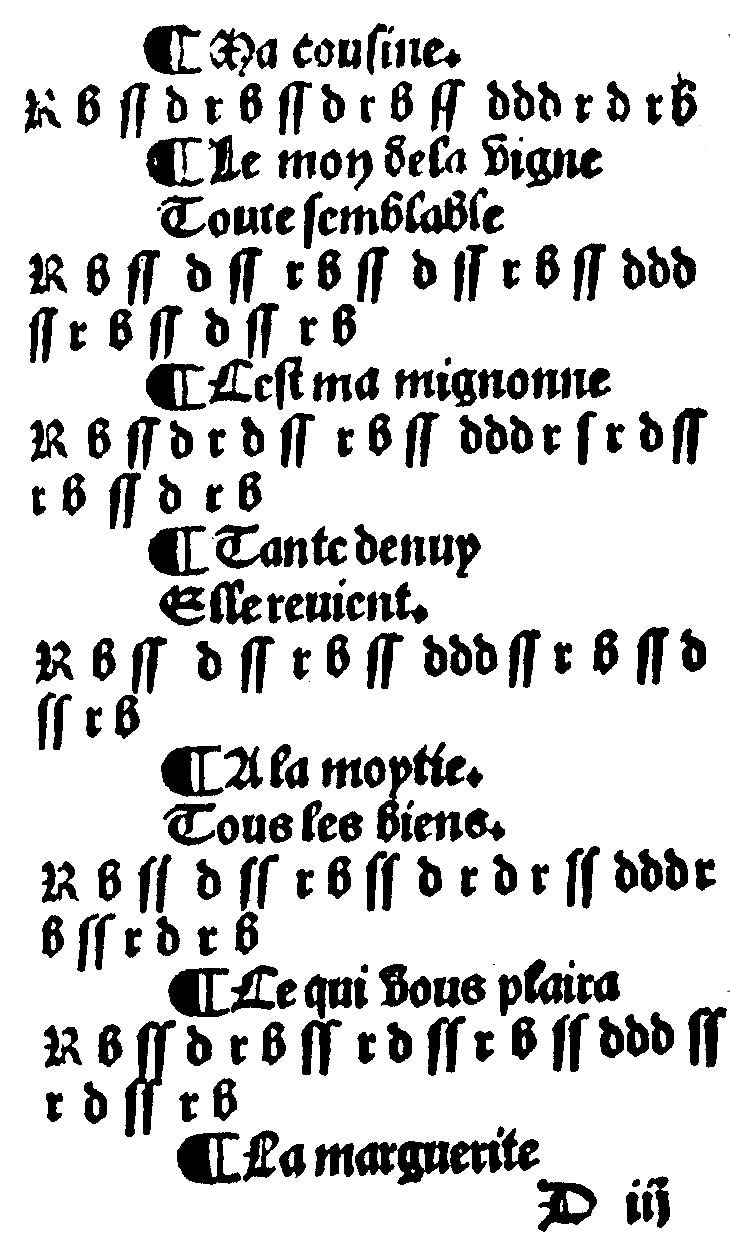 ¶ Ma cousine.
R b ſſ d r b ſſ d r b ſſ ddd r d r b
¶ Le moy dela vigne
Toute ſemblable
R b ſſ d ſſ r b ſſ d ſſ r b ſſ ddd
ſſ r b ſſ d ſſ r b
¶ Ceſt ma mignonne
R b ſſ d r d ſſ r b ſſ ddd r ſ r d ſſ
r b ſſ d r b
¶ Tant denuy
Elle reuient.
R b ſſ d ſſ r b ſſ ddd ſſ r b ſſ d
ſſ r b
¶ A la moytie.
Tous les biens.
R b ſſ d ſſ r b ſſ d r d r ſſ ddd r
b ſſ r d r b
¶ Ce qui vous plaira
R b ſſ d r b ſſ r d ſſ r b ſſ ddd ſſ
r d ſſ r b
¶ La marguerite
D iij